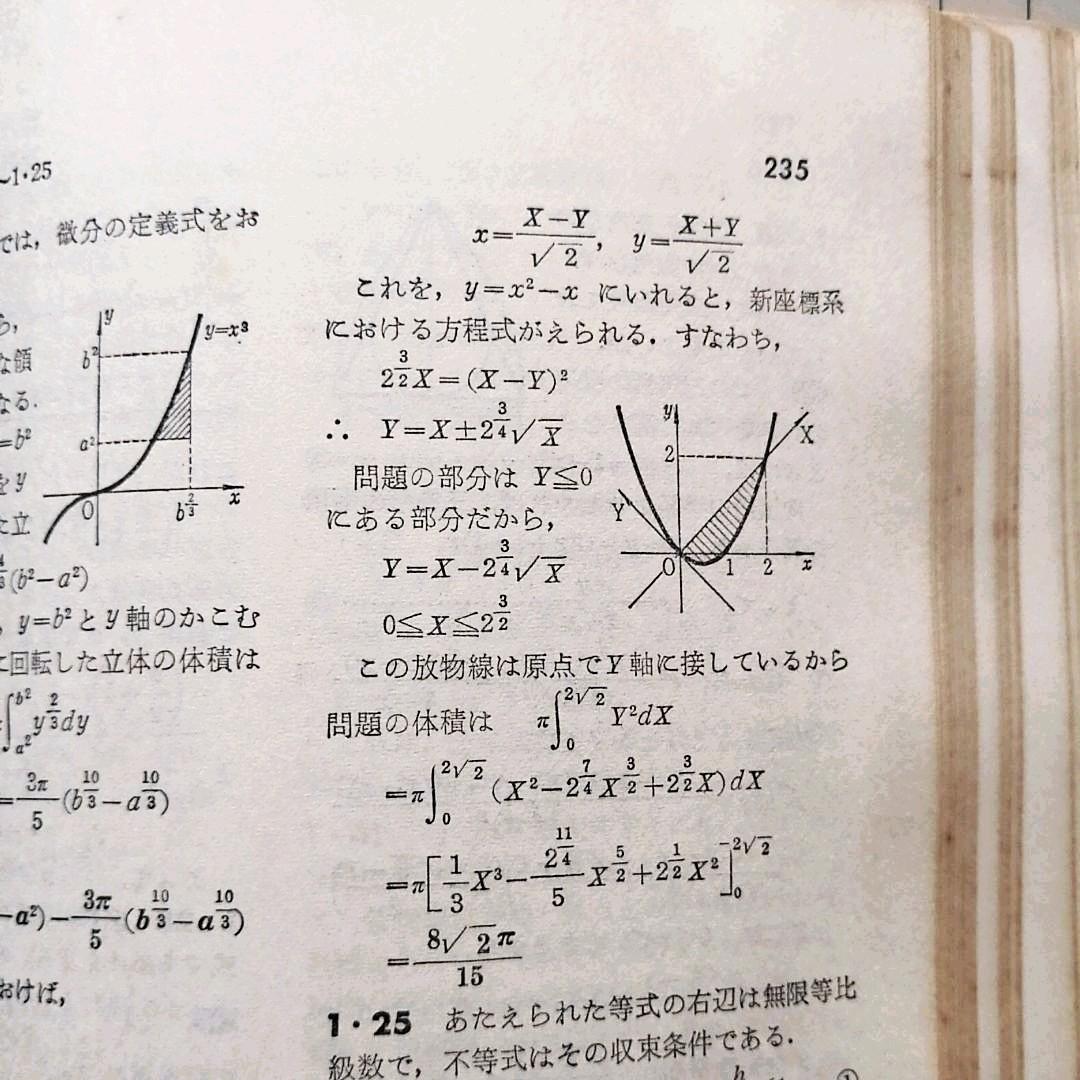 ~1·25
では, 微分の定義式をお
y
y=x³
b²
a²
O
b^{2/3}
x
ら,
な領
なる.
=b²
をy
た立
(b²-a²)
, y=b²とy軸のかこむ
に回転した立体の体積は
∫_{a²}^{b²} y^{2/3}dy
=3π/5(b^{10/3}-a^{10/3})
-a²)-3π/5(b^{10/3}-a^{10/3})
おけば,
235
x=(X-Y)/√2, y=(X+Y)/√2
これを, y=x²-x にいれると, 新座標系
における方程式がえられる. すなわち,
2^{3/2}X=(X-Y)²
∴ Y=X±2^{3/4}√X
問題の部分は Y≦0
にある部分だから,
Y=X-2^{3/4}√X
0≦X≦2^{3/2}
y
X
2
Y
O
1
2
x
この放物線は原点でY軸に接しているから
問題の体積は π∫_0^{2√2} Y²dX
=π∫_0^{2√2} (X²-2^{7/4}X^{3/2}+2^{3/2}X)dX
=π[1/3 X³-2^{11/4}/5 X^{5/2}+2^{1/2}X²]_0^{2√2}
=8√2π/15
1·25 あたえられた等式の右辺は無限等比
級数で, 不等式はその収束条件である.
h
①